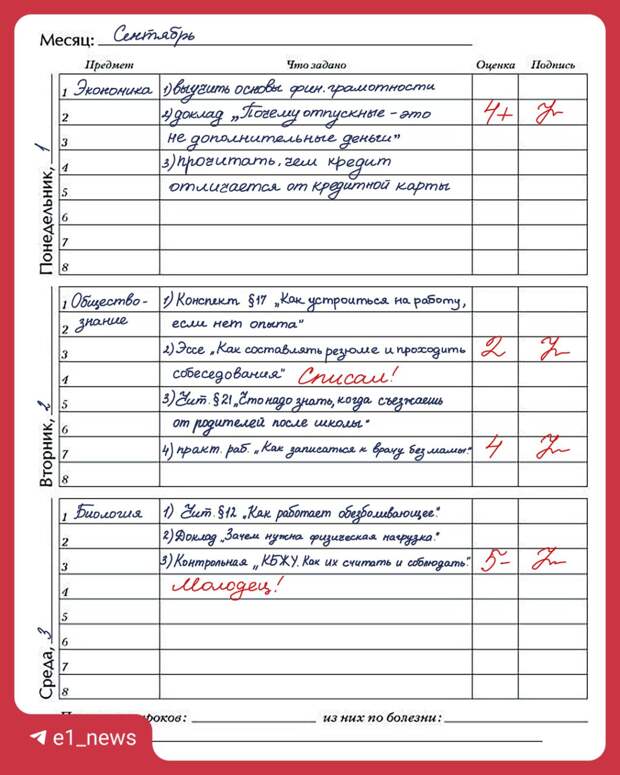 Месяц: Сентябрь
Предмет Что задано Оценка Подпись
Понедельник, 1
1 Экономика 1) выучить основы фин. грамотности
2 2) доклад „Почему отпускные - это 4+
3 не дополнительные деньги"
4 3) прочитать, чем кредит
5 отличается от кредитной карты
6
7
8
Вторник, 2
1 Общество- 1) Конспект §17 „Как устроиться на работу,
2 знание если нет опыта"
3 2) Эссе „Как составлять резюме и проходить 2
4 собеседования" Списал!
5 3) Чит. §21 „Что надо знать, когда съезжаешь
6 от родителей после школы"
7 4) практ. раб. „Как записаться к врачу без мамы" 4
8
Среда, 3
1 Биология 1) Чит. §12 „Как работает обезболивающее"
2 2) Доклад „Зачем нужна физическая нагрузка"
3 3) Контрольная „КБЖУ. Как их считать и соблюдать" 5-
4 Молодец!
5
6
7
8
роков: из них по болезни:
e1_news